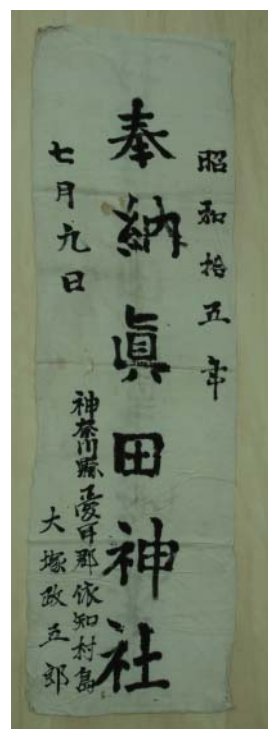 昭和拾五年
奉納眞田神社
七月九日
神奈川縣愛甲郡依知村島
大塚政五郎